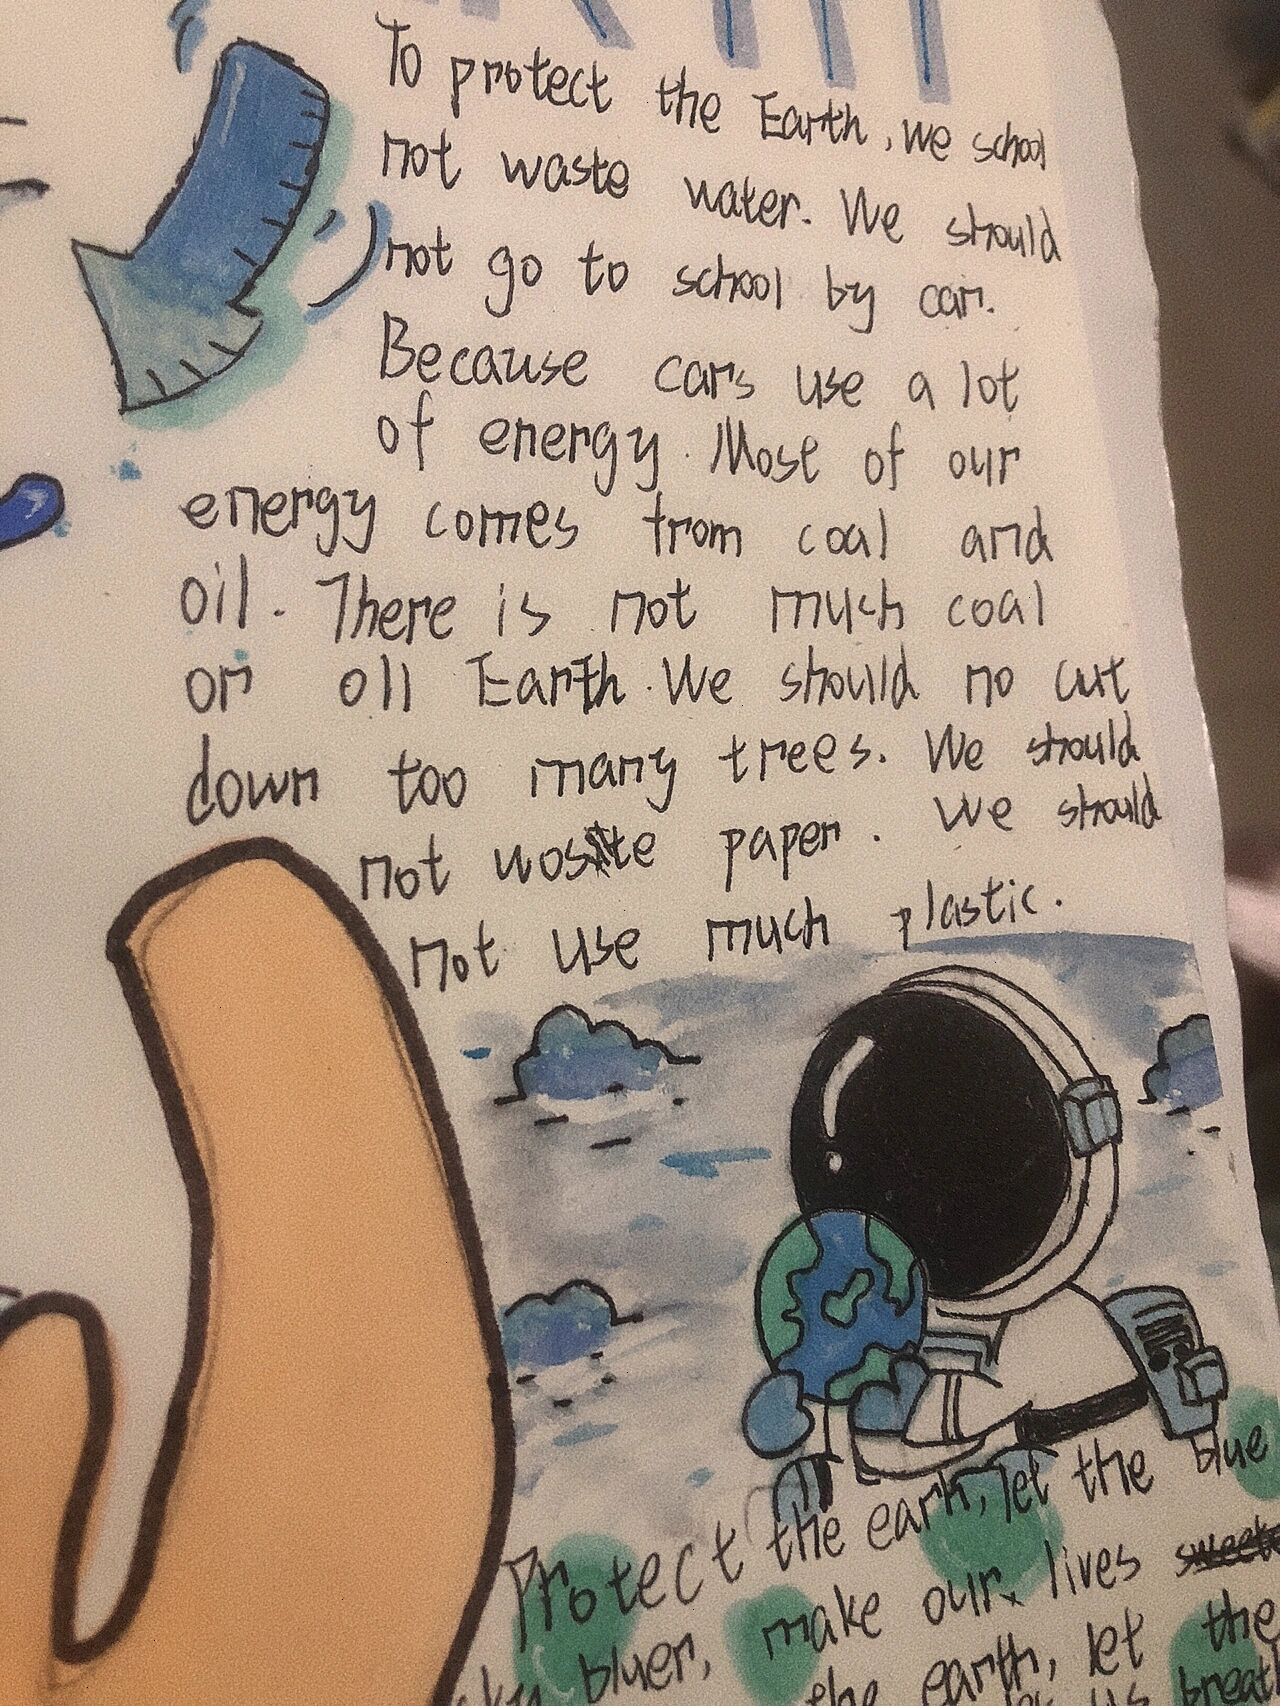 To protect the Earth, we school
not waste water. We should
not go to school by car.
Because cars use a lot
of energy. Most of our
energy comes from coal and
oil. There is not much coal
or oll Earth. We should no cut
down too many trees. We should
not woste paper. We should
not use much plastic.
Protect the earh, let the blue
sky bluer, make our lives sweet
the earth, let the